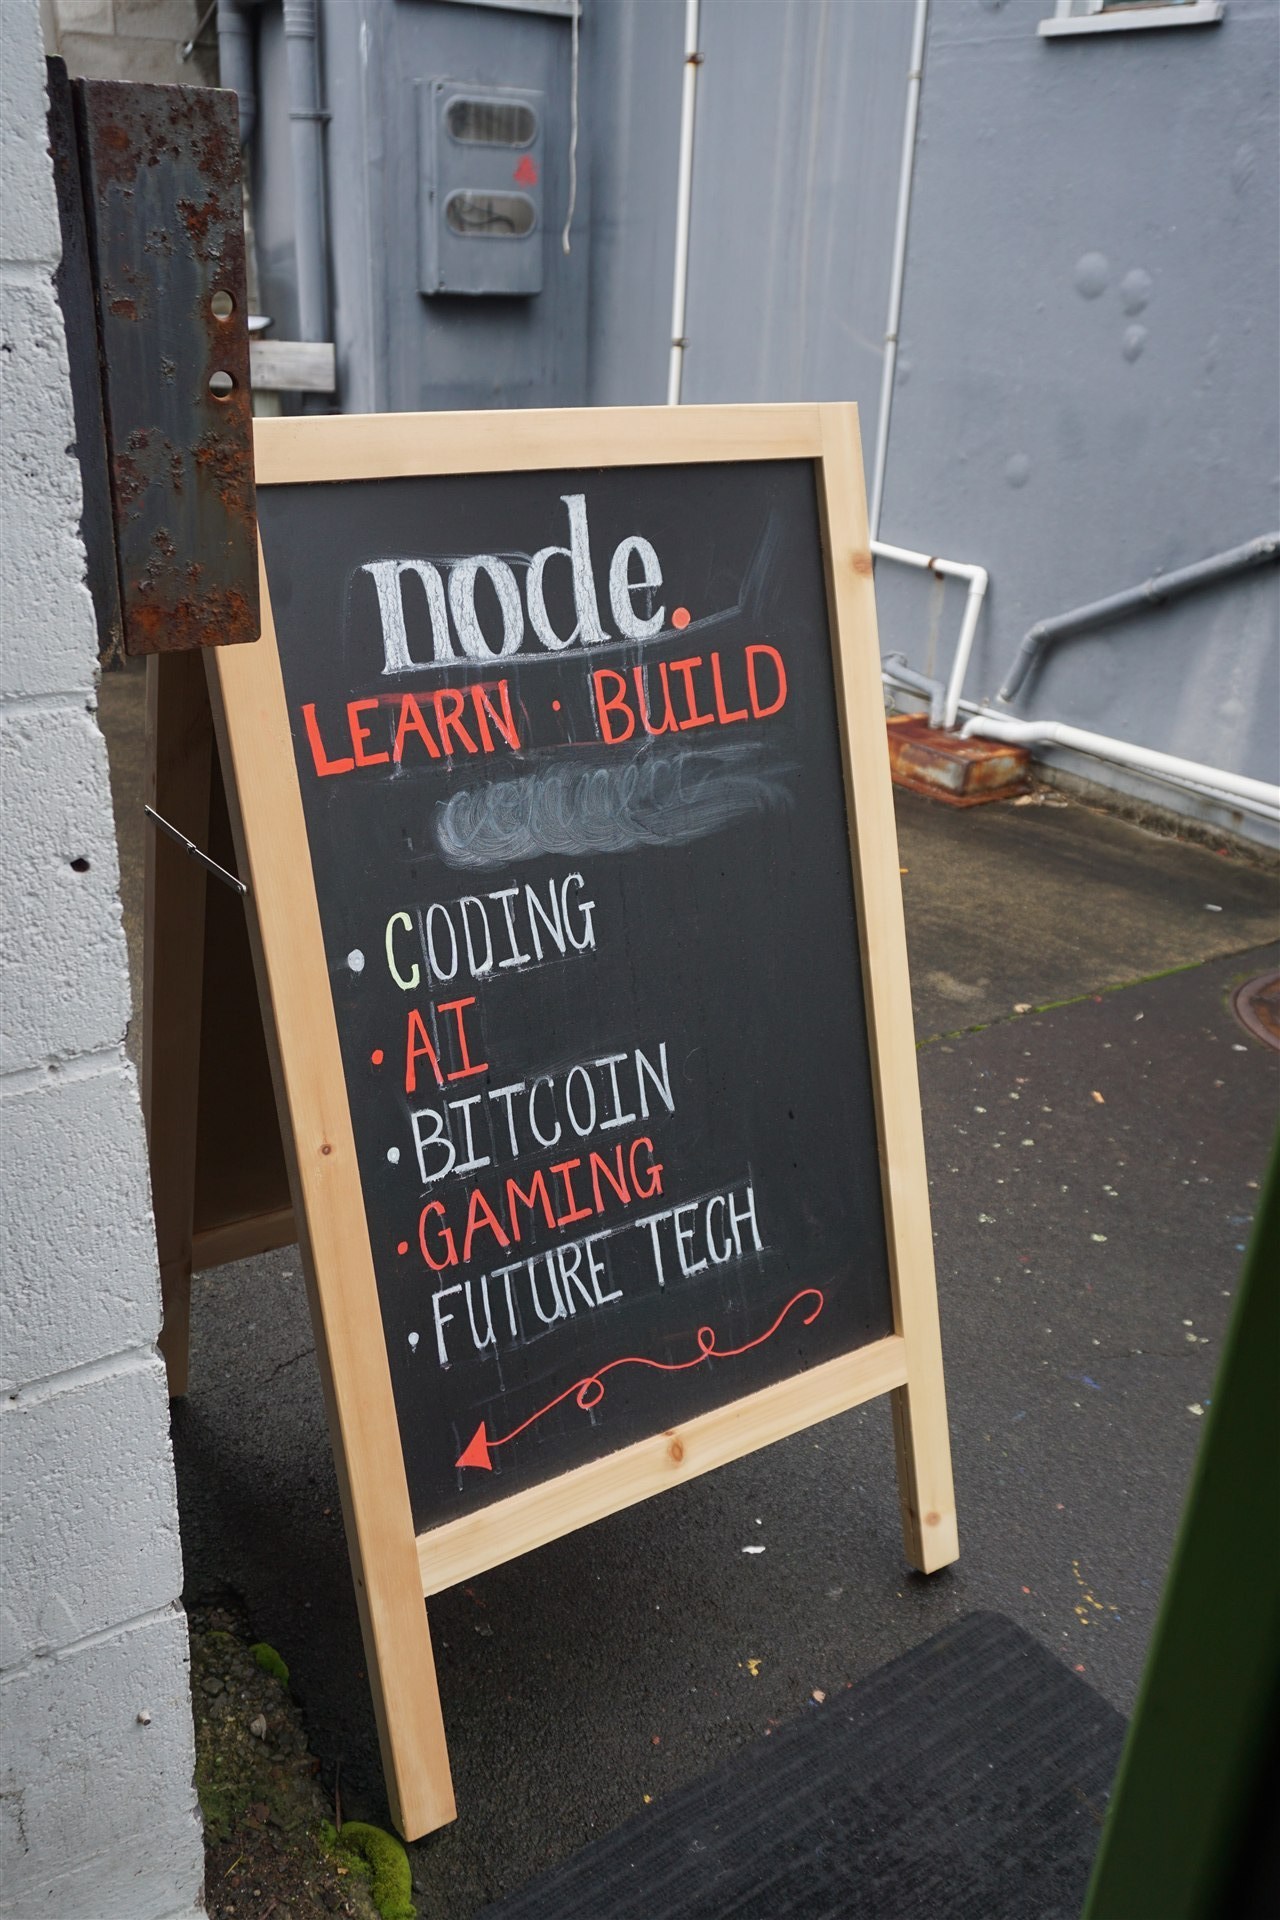 node.
LEARN · BUILD
connect
• CODING
• AI
• BITCOIN
• GAMING
• FUTURE TECH